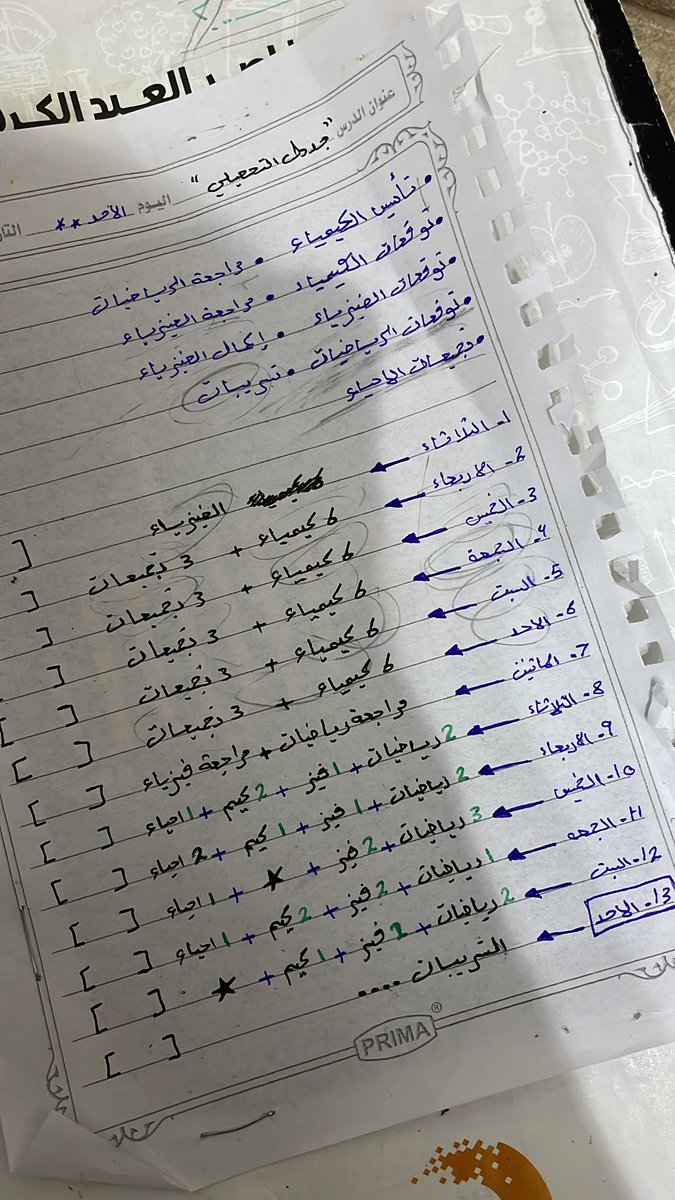 العبد الكر
عنوان الدرس "جدول التحصيلي"
اليوم الأحد ** التا
• تأسيس الكيمياء • مراجعة الرياضيات
• توقعات الكيمياء • مراجعة الفيزياء
• توقعات الفيزياء • إكمال الفيزياء
• توقعات الرياضيات • تسريبات
• تجميعات الاحياء
1- الثلاثاء ← الفيزياء [ ]
2- الاربعاء ← 6 كيمياء + 3 تجميعات [ ]
3- الخميس ← 6 كيمياء + 3 تجميعات [ ]
4- الجمعة ← 6 كيمياء + 3 تجميعات [ ]
5- السبت ← 6 كيمياء + 3 تجميعات [ ]
6- الاحد ← 6 كيمياء + 3 تجميعات [ ]
7- الاثنين ← مراجعة رياضيات + مراجعة فيزياء [ ]
8- الثلاثاء ← 2 رياضيات + 1 فيز + 2 كيم + 1 احياء [ ]
9- الاربعاء ← 2 رياضيات + 1 فيز + 1 كيم + 2 احياء [ ]
10- الخميس ← 3 رياضيات + 2 فيز + ★ + 1 احياء [ ]
11- الجمعه ← 1 رياضيات + 2 فيز + 2 كيم + 1 احياء [ ]
12- السبت ← 2 رياضيات + 2 فيز + 1 كيم + ★ [ ]
13- الاحد ← التسريبات .... [ ]
PRIMA®